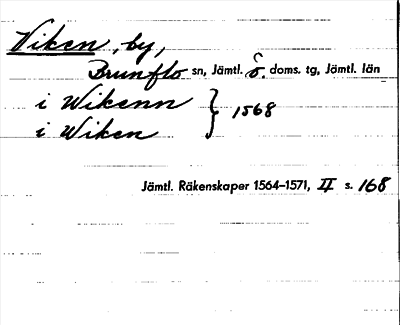 Viken, by,
Brunflo sn, Jämtl. ö. doms. tg, Jämtl. län
i Wikenn } 1568
i Wiken
Jämtl. Räkenskaper 1564–1571, II s. 168